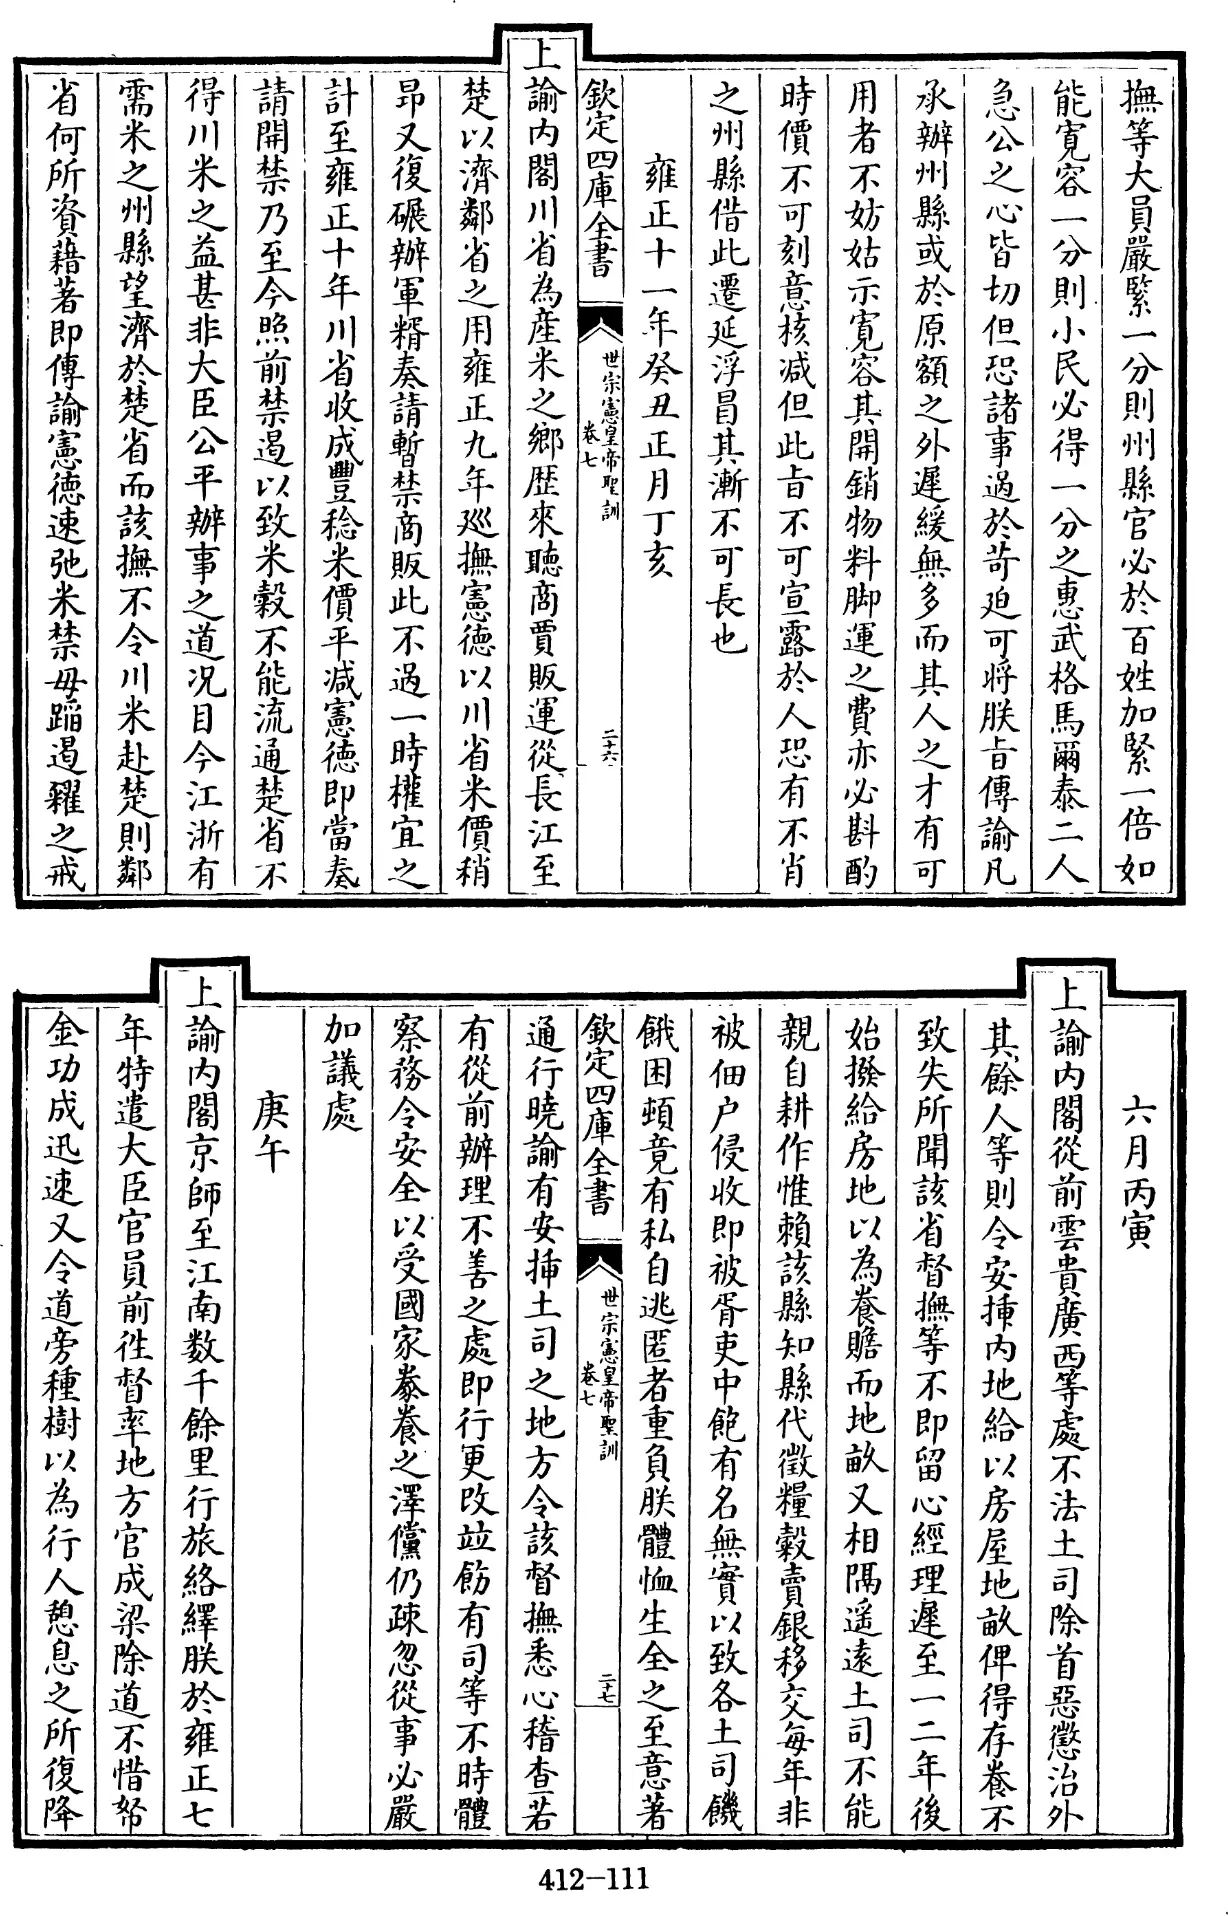 撫等大員嚴緊一分則州縣官必於百姓加緊一倍如
能寛容一分則小民必得一分之惠武格馬爾泰二人
急公之心皆切但恐諸事過於苛迫可將朕旨傳諭凡
承辦州縣或於原額之外遲緩無多而其人之才有可
用者不妨姑示寛容其開銷物料脚運之費亦必斟酌
時價不可刻意核減但此旨不可宣露於人恐有不肖
之州縣借此遷延浮冒其漸不可長也
雍正十一年癸丑正月丁亥
欽定四庫全書
世宗憲皇帝聖訓
卷七
二十六
上諭内閣川省為産米之鄉歴來聽商賈販運從長江至
楚以濟鄰省之用雍正九年巡撫憲德以川省米價稍
昻又復碾辦軍糈奏請暫禁商販此不過一時權宜之
計至雍正十年川省收成豐稔米價平減憲德即當奏
請開禁乃至今照前禁遏以致米穀不能流通楚省不
得川米之益甚非大臣公平辦事之道况目今江浙有
需米之州縣望濟於楚省而該撫不令川米赴楚則鄰
省何所資藉著即傳諭憲德速弛米禁毋蹈遏糴之戒
六月丙寅
上諭内閣從前雲貴廣西等處不法土司除首惡懲治外
其餘人等則令安揷内地給以房屋地畝俾得存養不
致失所聞該省督撫等不即留心經理遲至一二年後
始撥給房地以為養贍而地畝又相隔遥遠土司不能
親自耕作惟賴該縣知縣代徵糧穀賣銀移交每年非
被佃户侵收即被胥吏中飽有名無實以致各土司饑
餓困頓竟有私自逃匿者重負朕體恤生全之至意著
欽定四庫全書
世宗憲皇帝聖訓
卷七
二十七
通行曉諭有安揷土司之地方令該督撫悉心稽查若
有從前辦理不善之處即行更改竝飭有司等不時體
察務令安全以受國家豢養之澤儻仍疎忽從事必嚴
加議處
庚午
上諭内閣京師至江南數千餘里行旅絡繹朕於雍正七
年特遣大臣官員前徃督率地方官成梁除道不惜帑
金功成迅速又令道旁種樹以為行人憩息之所復降
412-111